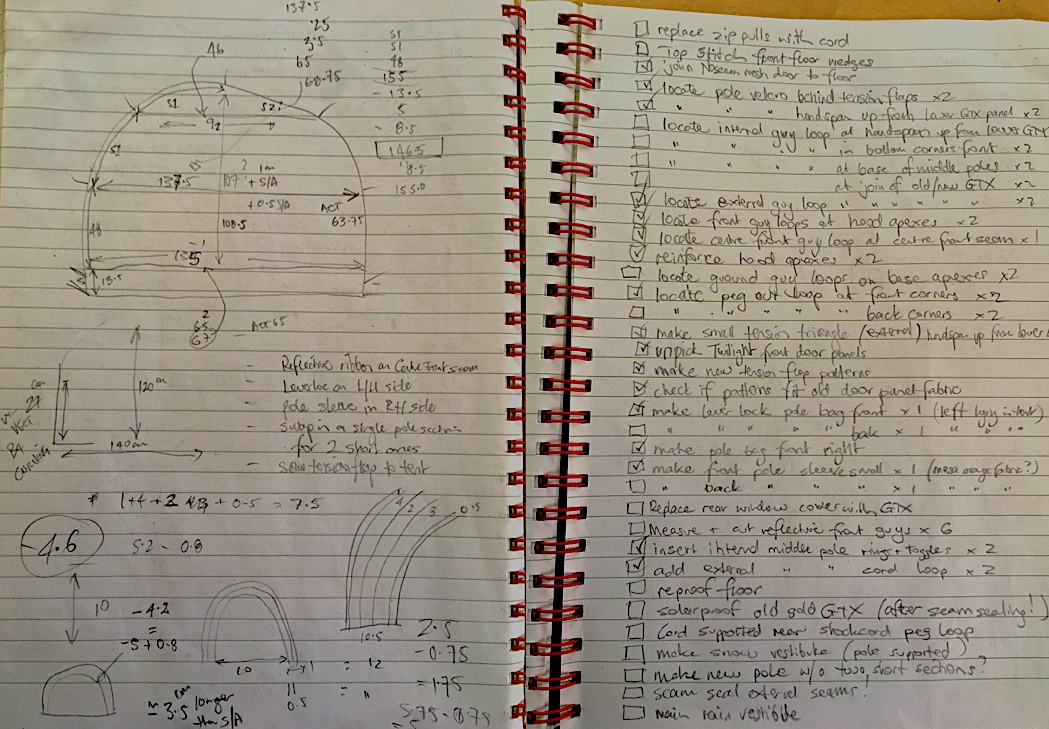 137.5
.25
3.5
65
68.75
46
51
51
48
155
- 13.5
5
- 8.5
146.5
8.5
155.0
51
52
92
51
137.5
107
2
1m
+ S/A
+ 0.5 S/A
ACT
63.75
108.5
48
135
13.5
2
65
67
ACT 65
120 cm
140 cm
27
84
- Reflective ribbon on Centre Front seam
- Leverloc on L/H side
- Pole sleeve in R/H side
- Swap in a single pole section
for 2 short ones
- Sew tension flap to tent
+ 0.5 = 7.5
-4.6
5.2 - 0.8
1
2
3
0.5
10
- 4.2
=
-5 + 0.8
10.5
2.5
- 0.75
= 1.75
10
1
= 12
11
0.5
= 3.5 cm longer
than S/A
5.75 - 0.75
replace zip pulls with cord
Top Stitch front floor wedges
join Noseeum mesh door to floor
locate pole velcro behind tension flaps x2
" " " handspan up from lower GTX panel x2
locate internal guy loop at handspan up from lower GTX
" " " " in bottom corners front x2
" " " " at base of middle poles x2
at join of old/new GTX x2
locate external guy loop " " " " " x2
locate front guy loops at hood apexes x2
locate centre front guy loop at centre front seam x1
reinforce hood apexes x2
locate ground guy loops on base apexes x2
locate peg out loop at front corners x2
" " " " " back corners x2
make small tension triangle (external) handspan up from lower
unpick Twilight front door panels
make new tension flap patterns
check if patterns fit old door panel fabric
make lever lock pole bag front x1 (left
" " " " " back x1 " " "
make pole bag front right
make front pole sleeve small x1 (mesa orange fabric?)
" back " " x1 " " "
Replace rear window cover with GTX
Measure + cut reflective front guys x 6
insert internal middle pole rings + toggles x2
add external " " cord loop x2
reproof floor
solarproof old gold GTX (after seam sealing!)
Cord supported rear shockcord peg loop
make snow vestibule (pole supported)
make new pole w/o two short sections?
seam seal external seams!
main rain vestibule